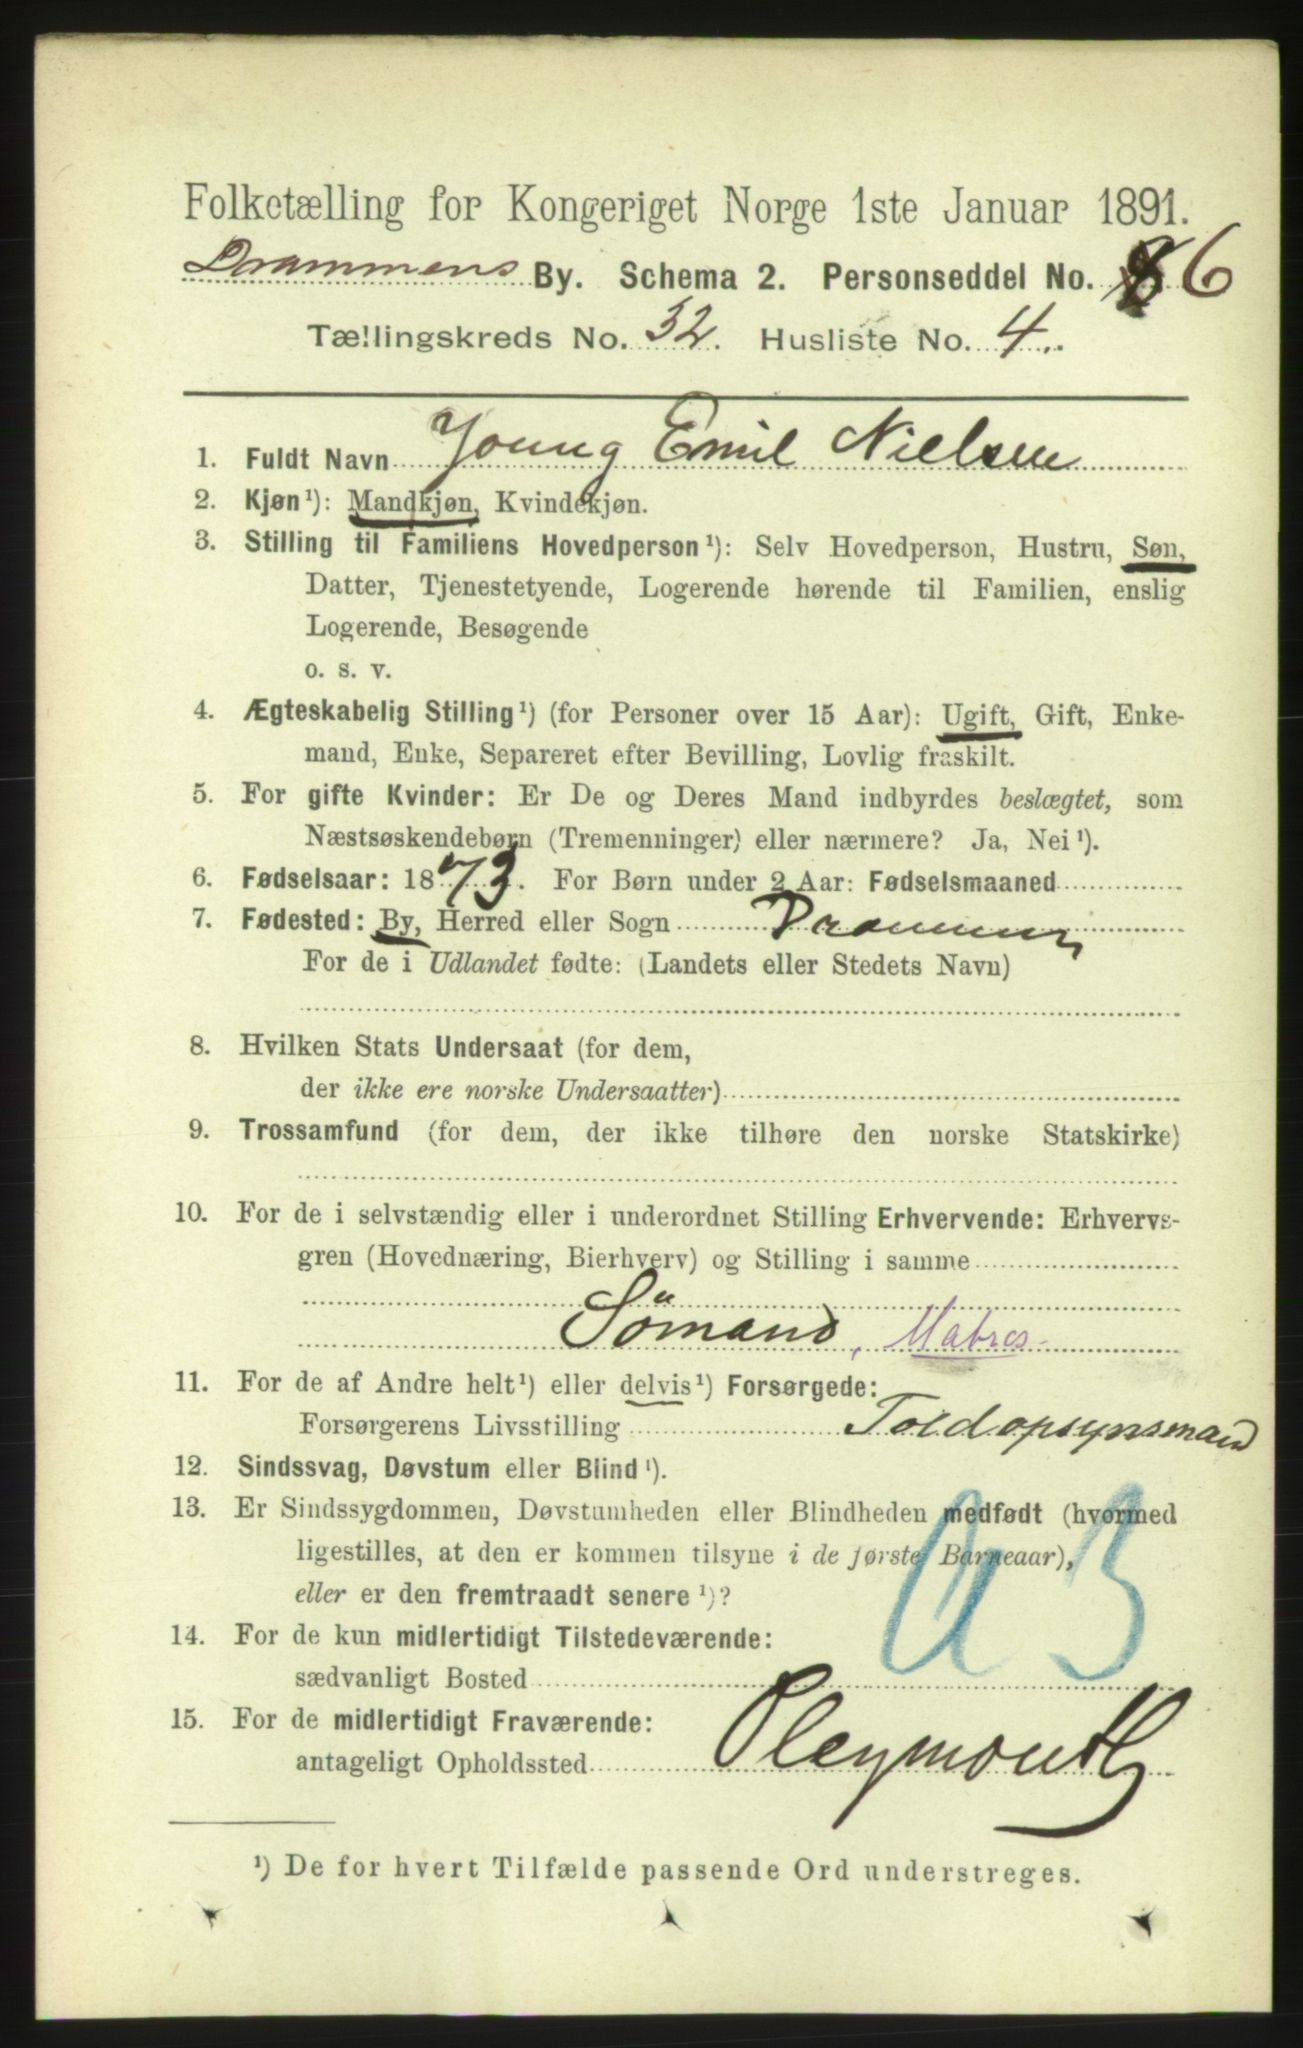 Folketælling for Kongeriget Norge 1ste Januar 1891.
Drammens By. Schema 2. Personseddel No. 6
Tællingskreds No. 32. Husliste No. 4.
1. Fuldt Navn Young Emil Nielsen
2. Kjøn¹): Mandkjøn, Kvindekjøn.
3. Stilling til Familiens Hovedperson¹): Selv Hovedperson, Hustru, Søn,
Datter, Tjenestetyende, Logerende hørende til Familien, enslig
Logerende, Besøgende
o. s. v.
4. Ægteskabelig Stilling¹) (for Personer over 15 Aar): Ugift, Gift, Enke-
mand, Enke, Separeret efter Bevilling, Lovlig fraskilt.
5. For gifte Kvinder: Er De og Deres Mand indbyrdes beslægtet, som
Næstsøskendebørn (Tremenninger) eller nærmere? Ja, Nei¹).
6. Fødselsaar: 1873. For Børn under 2 Aar: Fødselsmaaned
7. Fødested: By, Herred eller Sogn Drammen
For de i Udlandet fødte: (Landets eller Stedets Navn)
8. Hvilken Stats Undersaat (for dem,
der ikke ere norske Undersaatter)
9. Trossamfund (for dem, der ikke tilhøre den norske Statskirke)
10. For de i selvstændig eller i underordnet Stilling Erhvervende: Erhvervs-
gren (Hovednæring, Bierhverv) og Stilling i samme
Sömand, Matros
11. For de af Andre helt¹) eller delvis¹) Forsørgede:
Forsørgerens Livsstilling Toldopsynsmand
12. Sindssvag, Døvstum eller Blind¹).
13. Er Sindssygdommen, Døvstumheden eller Blindheden medfødt (hvormed
ligestilles, at den er kommen tilsyne i de første Barneaar),
eller er den fremtraadt senere¹)?
14. For de kun midlertidigt Tilstedeværende:
sædvanligt Bosted
15. For de midlertidigt Fraværende:
antageligt Opholdssted Pleymouth
¹) De for hvert Tilfælde passende Ord understreges.